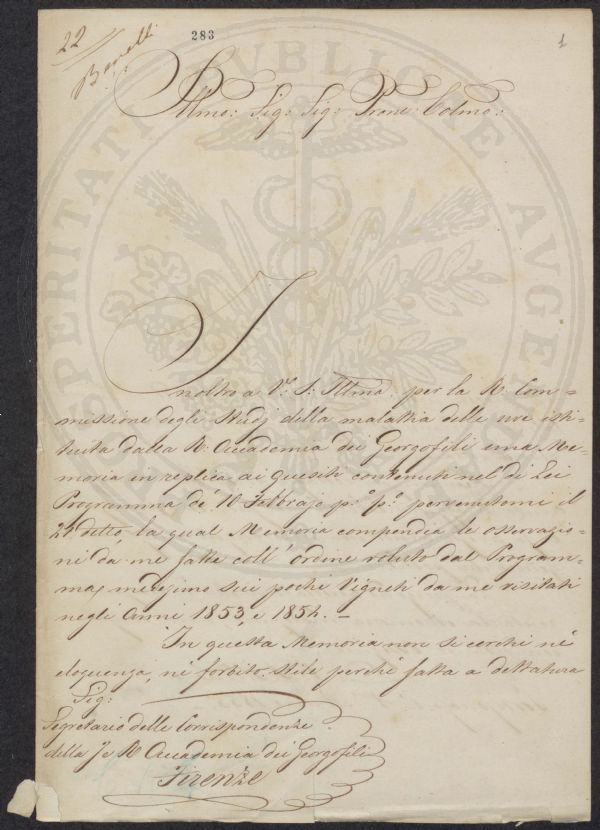 22
283
1
Illmo: Sig: Sig: Prone: Colmo:
Inoltro a V.ª S: Illma: per la R. Com=
missione degli Studj della malattia delle uve isti=
tuita dalla R: Accademia dei Georgofili una Me=
moria in replica ai quesiti contenuti nel di Lei
Programma de' 10 Febbrajo p.º p.º pervenutomi il
24 detto, la qual Memoria compendia le osservazio=
ni da me fatte coll' ordine voluto dal Program=
ma, medesimo sui pochi Vigneti da me visitati
negli Anni 1853, e 1854. —
In questa Memoria non si cerchi nè
eloquenza, nè forbito stile perchè fatta a dettatura
Sig:
Segretario delle Corrispondenze
della I. e R. Accademia dei Georgofili
Firenze
PROSPERITATI PUBLICAE AUGENDAE